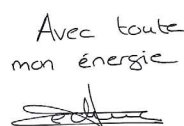 Avec toute
mon énergie